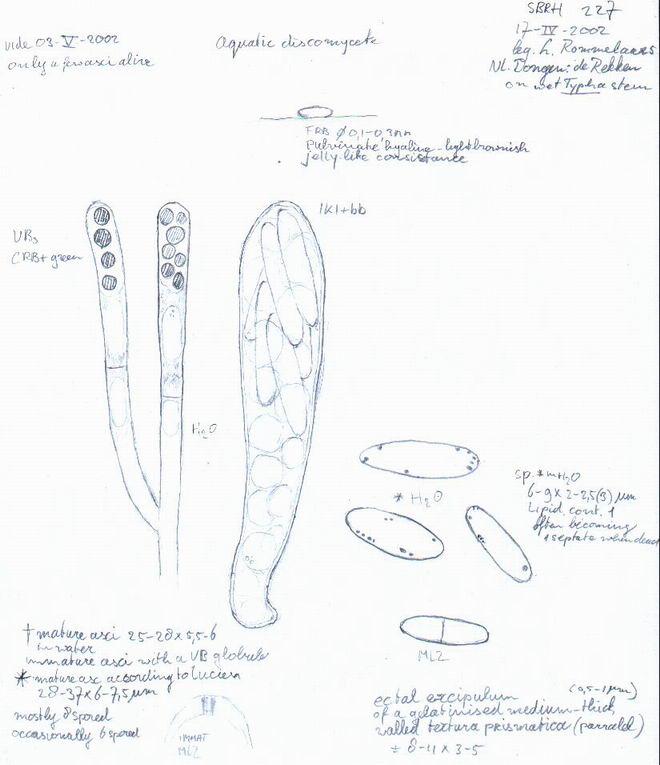 SBRH 227
17-IV-2002
leg. L. Rommelaars
NL. Dongen: de Rekken
on wet Typha stem
vide 03-V-2002
only a few asci alive
Aquatic discomycete
FRB Ø 0,1-0,3mm
pulvinate hyaline - lightbrownish
jelly-like consistance
IKI+bb
VBs
CRB+ green
H2O
sp. * in H2O
6-9 x 2-2,5(3) µm
Lipid. cont. 1
often becoming
1 septate when dead
* H2O
MLZ
† mature asci 25-28 x 5,5-6
in water
immature asci with a VB globule
* mature asc according to Lucien
28-37 x 6-7,5 µm
mostly 8 spored
occasionally 6 spored
IMMAT
MLZ
ectal excipulum (0,5-1 µm)
of a gelatinised medium-thick
walled textura prismatica (parralel)
± 8-11 x 3-5